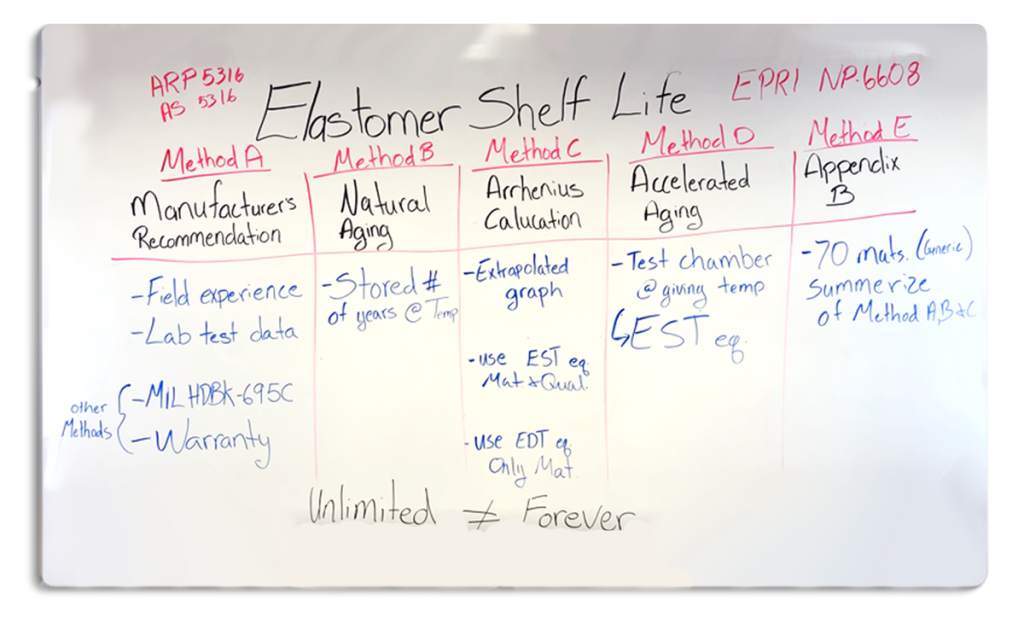 ARP 5316
AS 5316
Elastomer Shelf Life
EPRI NP-6608
Method A
Manufacturer's
Recommendation
-Field experience
-Lab test data
other
Methods
-MIL HDBK-695C
-Warranty
Method B
Natural
Aging
-Stored #
of years @ Temp
Method C
Arrhenius
Calucation
-Extrapolated
graph
-use EST eq.
Mat & Qual.
-use EDT eq.
Only Mat.
Method D
Accelerated
Aging
-Test chamber
@ giving temp
↳EST eq.
Method E
Appendix
B
-70 mats. (Generic)
summerize
of Method A,B&C
Unlimited ≠ Forever